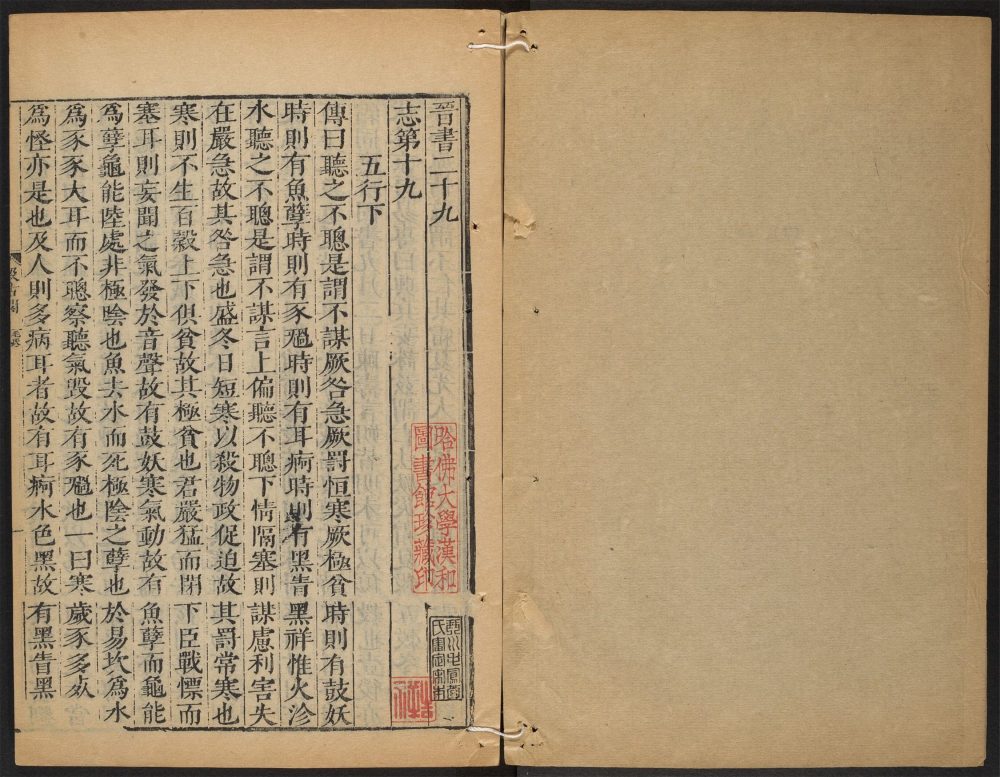 晉書二十九
志第十九
五行下
傳曰聽之不聰是謂不謀厥咎急厥罰恒寒厥極貧時則有鼓妖
時則有魚孽時則有豕𥚽時則有耳痾時則有黑眚黑祥惟火沴
水聽之不聰是謂不謀言上偏聽不聰下情隔塞則謀慮利害失
在嚴急故其咎急也盛冬日短寒以殺物政促迫故其罰常寒也
寒則不生百穀上下俱貧故其極貧也君嚴猛而閉下臣戰慄而
塞耳則妄聞之氣發於音聲故有鼓妖寒氣動故有魚孽而龜能
爲孽龜能陸處非極陰也魚去水而死極陰之孽也於易坎爲水
爲豕豕大耳而不聰察聽氣毀故有豕𥚽也一曰寒歲豕多死
爲怪亦是也及人則多病耳者故有耳痾水色黑故有黑眚黑
哈佛大學漢和
圖書館珍藏印